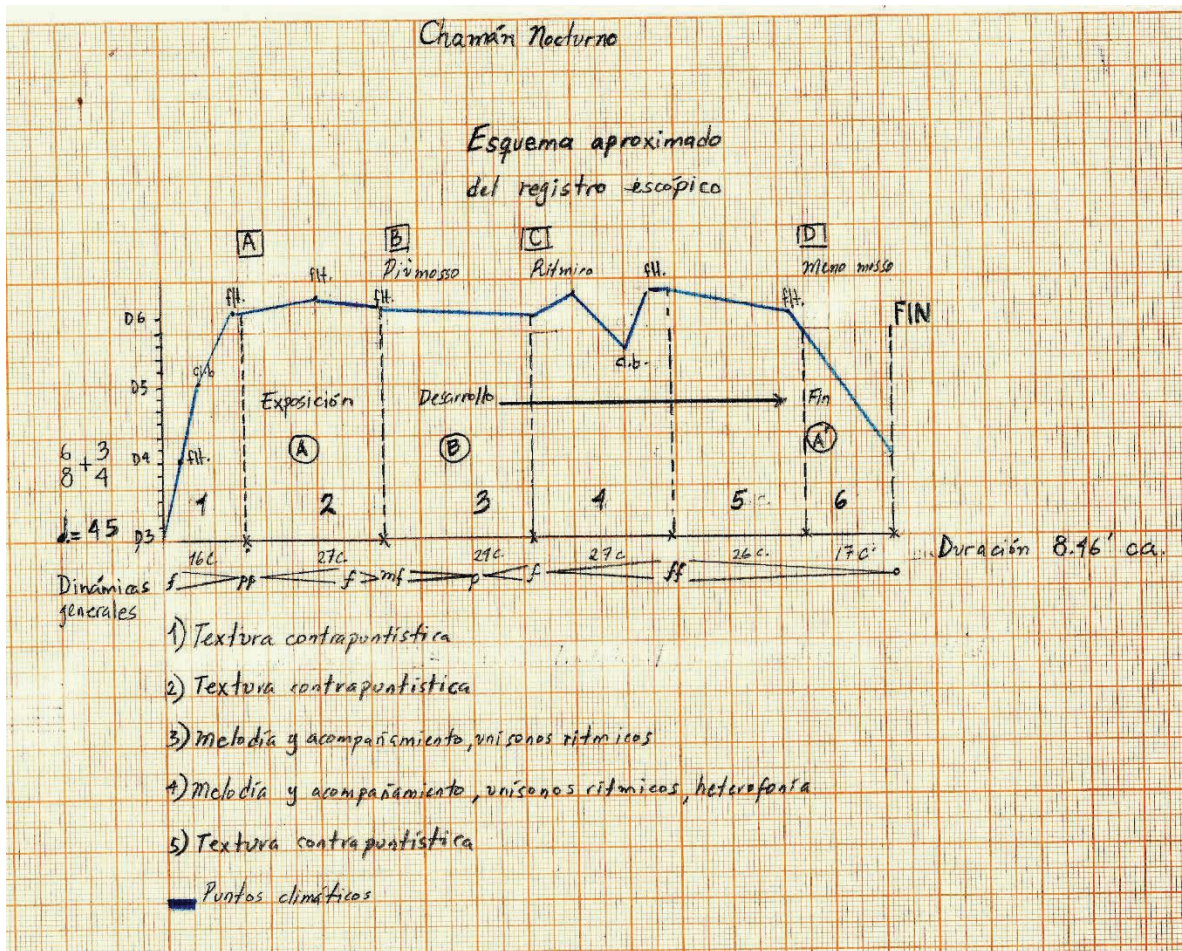 Chamán Nocturno
Esquema aproximado
del registro escópico
A B C D
Piùmosso Rítmico Meno mosso
flt. flt. flt. flt. flt.
D6 FIN
c.b. c.b.
D5
Exposición Desarrollo Fin
A B A'
D4 flt.
6/8 + 3/4
1 2 3 4 5 c. 6
♩.= 45 D3
16c 27c. 29c. 27c. 26c. 17c. Duración 8.46' ca.
Dinámicas f pp f > mf p f ff o
generales
1) Textura contrapuntística
2) Textura contrapuntística
3) Melodía y acompañamiento, unísonos rítmicos
4) Melodía y acompañamiento, unísonos rítmicos, heterofonía
5) Textura contrapuntística
Puntos climáticos